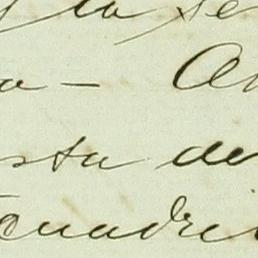 y la se
a — A
sta de
cuadri